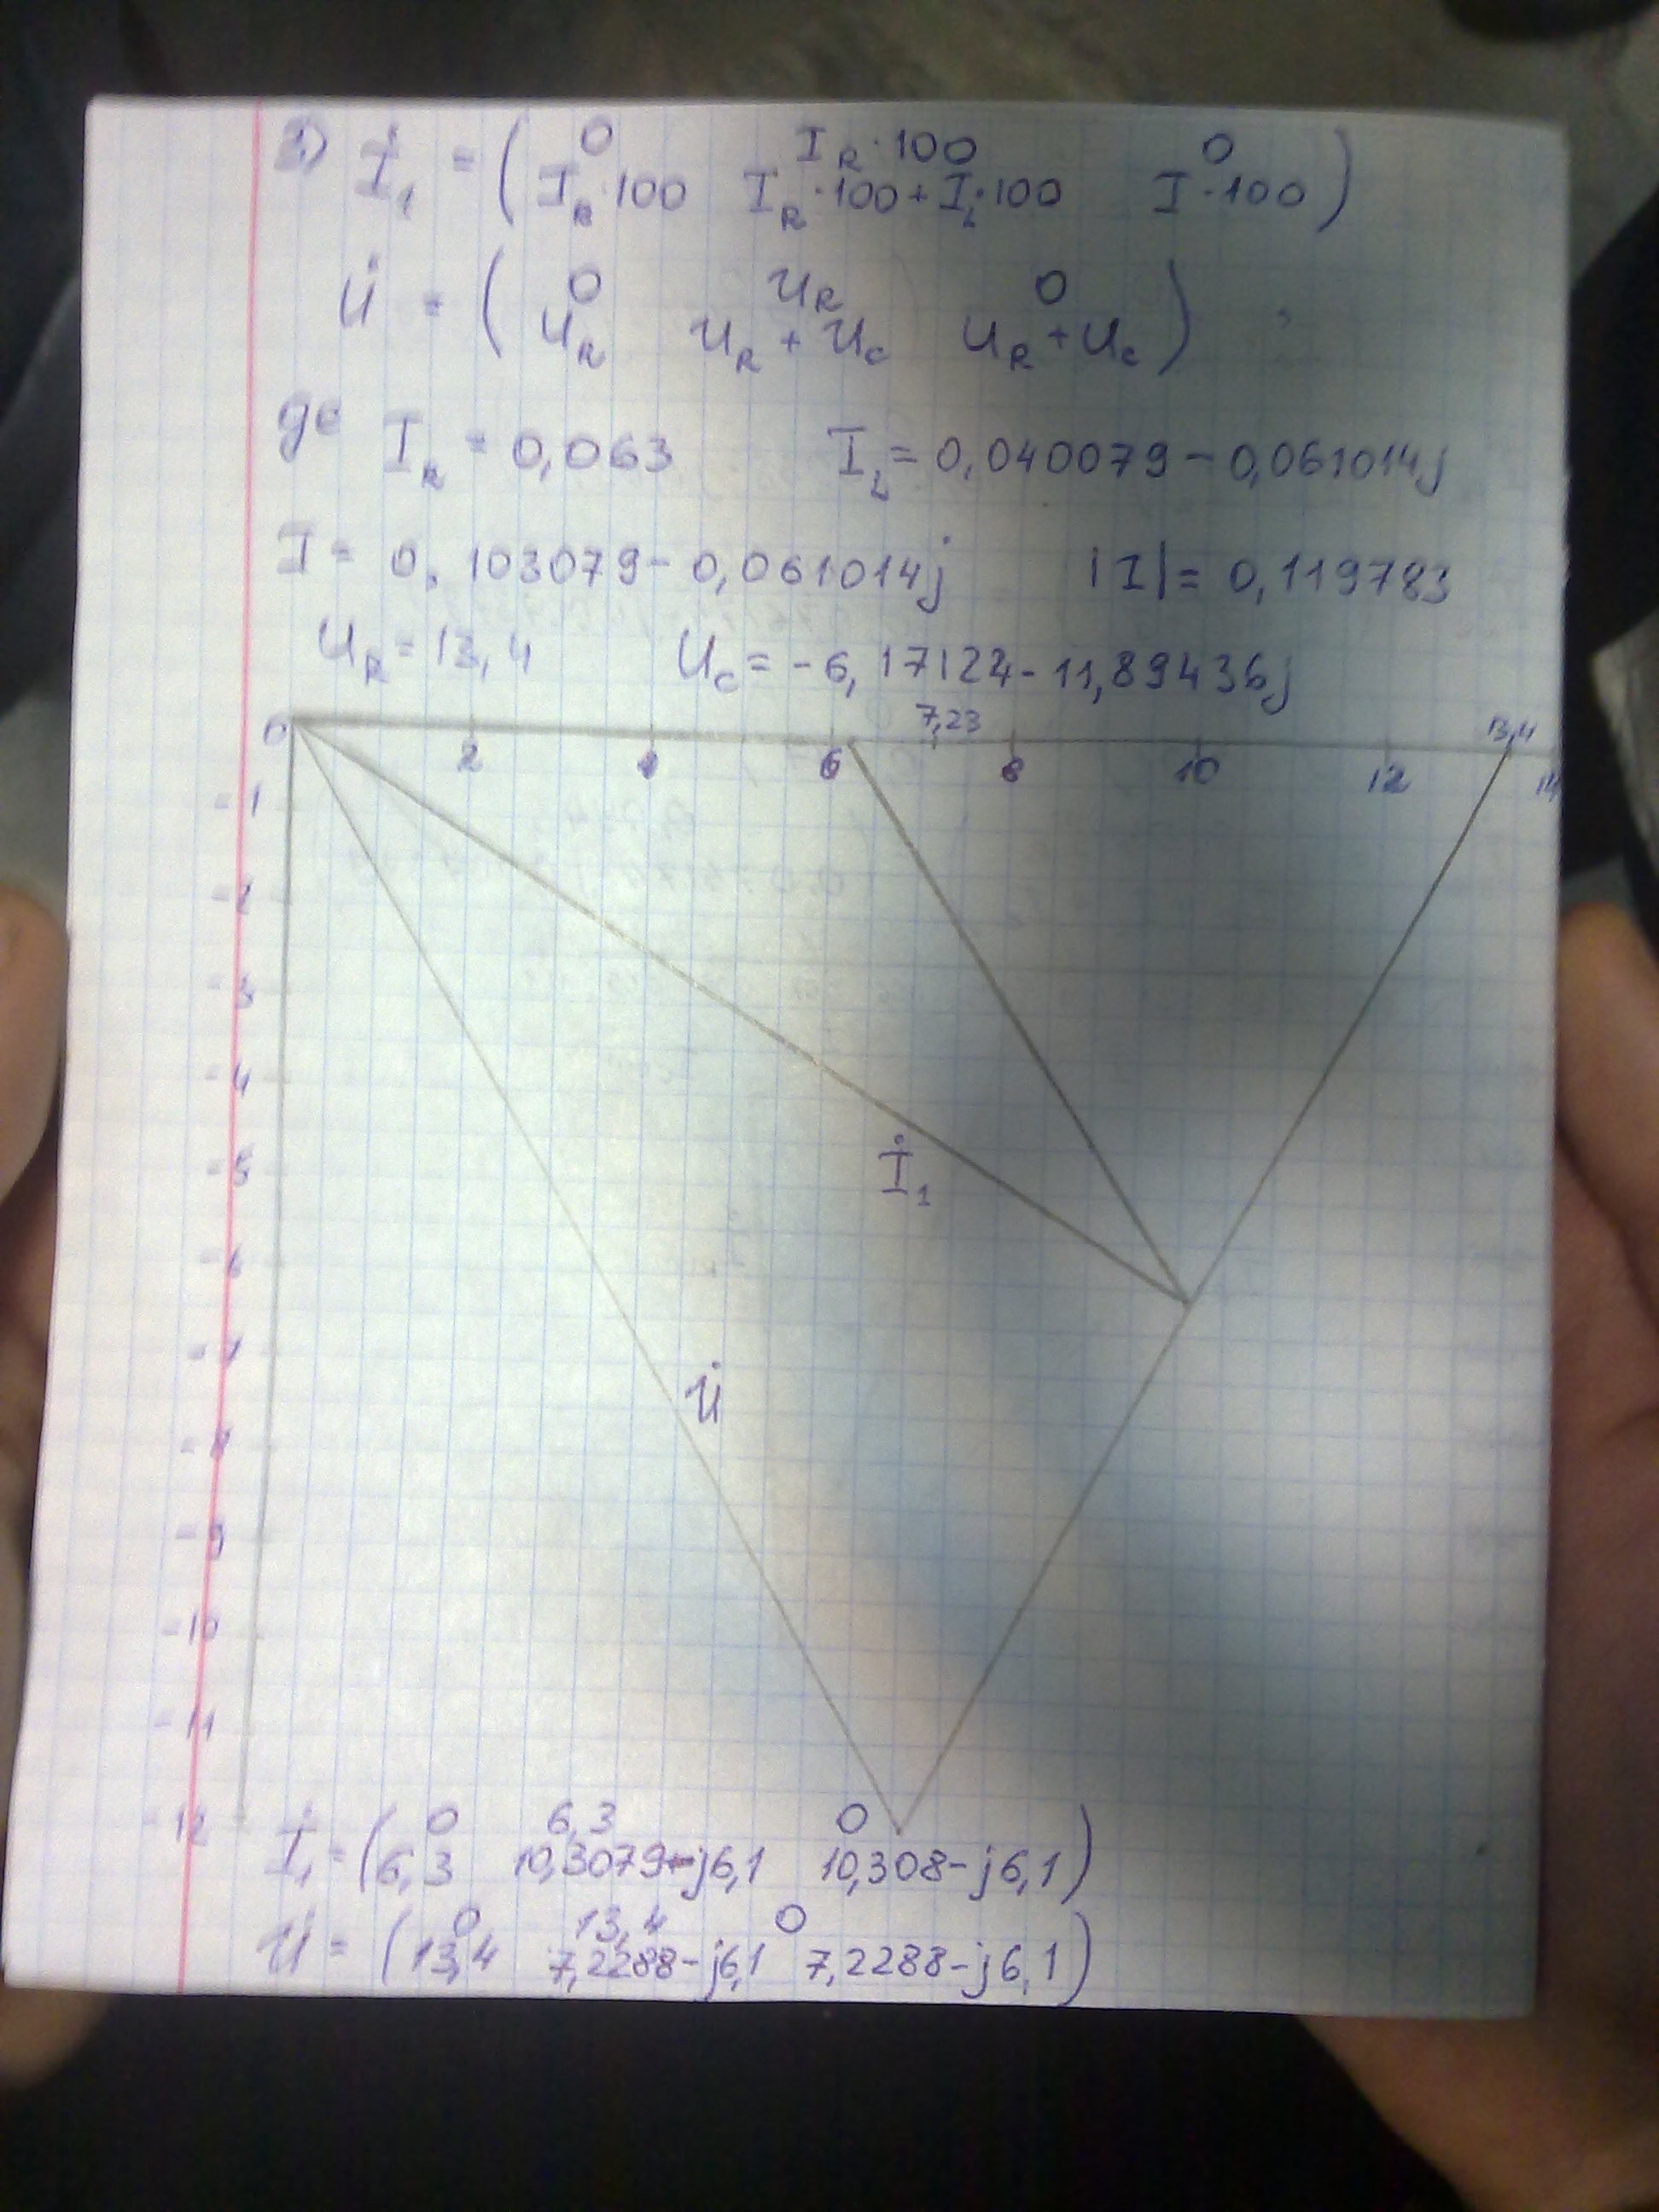 2) İ₁ = ( 0 I_R·100 0
I_R·100 I_R·100+I_L·100 I·100 )
U̇ = ( 0 U_R 0
U_R U_R + U_C U_R + U_C )
де I_R = 0,063 I_L = 0,040079 - 0,061014j
I = 0,103079 - 0,061014j |I| = 0,119783
U_R = 13,4 U_C = -6,17122 - 11,89436j
7,23 13,4
0 2 4 6 8 10 12 14
-1
-2
-3
-4
-5
İ₁
-6
-7
U̇
-8
-9
-10
-11
-12
İ₁ = ( 0 6,3 0
6,3 10,3079-j6,1 10,308-j6,1 )
U̇ = ( 0 13,4 0
13,4 7,2288-j6,1 7,2288-j6,1 )